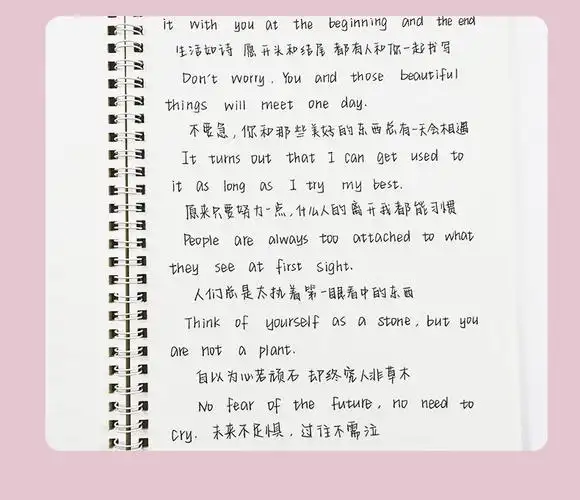 it with you at the beginning and the end
生活如诗 愿开头和结尾 都有人和你一起书写
Don't worry. You and those beautiful
things will meet one day.
不要急，你和那些美好的东西总有一天会相遇
It turns out that I can get used to
it as long as I try my best.
原来只要努力一点，什么人的离开我都能习惯
People are always too attached to what
they see at first sight.
人们总是太执着第一眼看中的东西
Think of yourself as a stone, but you
are not a plant.
自以为心若顽石 却终究人非草木
No fear of the future, no need to
cry. 未来不足惧，过往不需泣